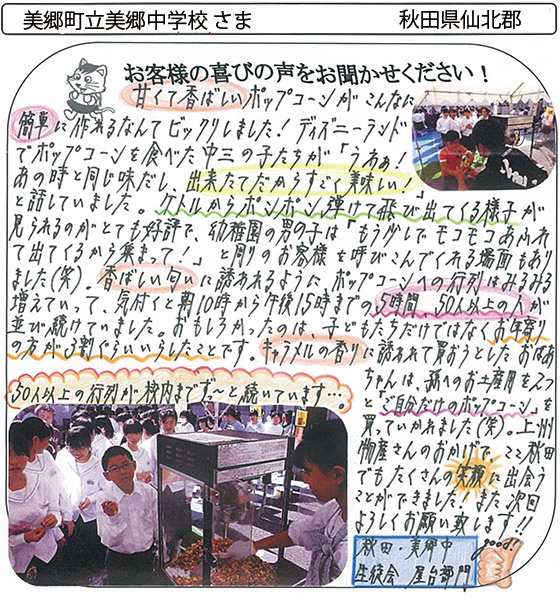 美郷町立美郷中学校 さま
秋田県仙北郡
お客様の喜びの声をお聞かせください！
甘くて香ばしいポップコーンがこんなに
簡単に作れるなんてビックリしました！ディズニーランド
でポップコーンを食べた中三の子たちが「うわぁ！
あの時と同じ味だし、出来たてだからすごく美味しい！」
と話していました。ケトルからポンポン弾けて飛び出てくる様子が
見られるのがとても好評で、幼稚園の男の子は「もう少しでモコモコあふれ
て出てくるから集まって！」と周りのお客様を呼びこんでくれる場面もあり
ました(笑)。香ばしい匂いに誘われるように、ポップコーンへの行列はみるみる
増えていって、気付くと朝10時から午後15時までの5時間、50人以上の人が
並び続けていました。おもしろかったのは、子どもたちだけではなくお年寄り
の方が3割ぐらいいらしたことです。キャラメルの香りに誘われて買おうとしたおばあ
ちゃんは、孫へのお土産用を2つ
と「ご自分だけのポップコーン」を
買っていかれました(笑)。上州
物産さんのおかげで、ここ秋田
でもたくさんの笑顔に出会う
ことができました！また次回
よろしくお願い致します!!
50人以上の行列が校内までず〜と続いています…。
秋田・美郷中
生徒会 屋台部門
good!